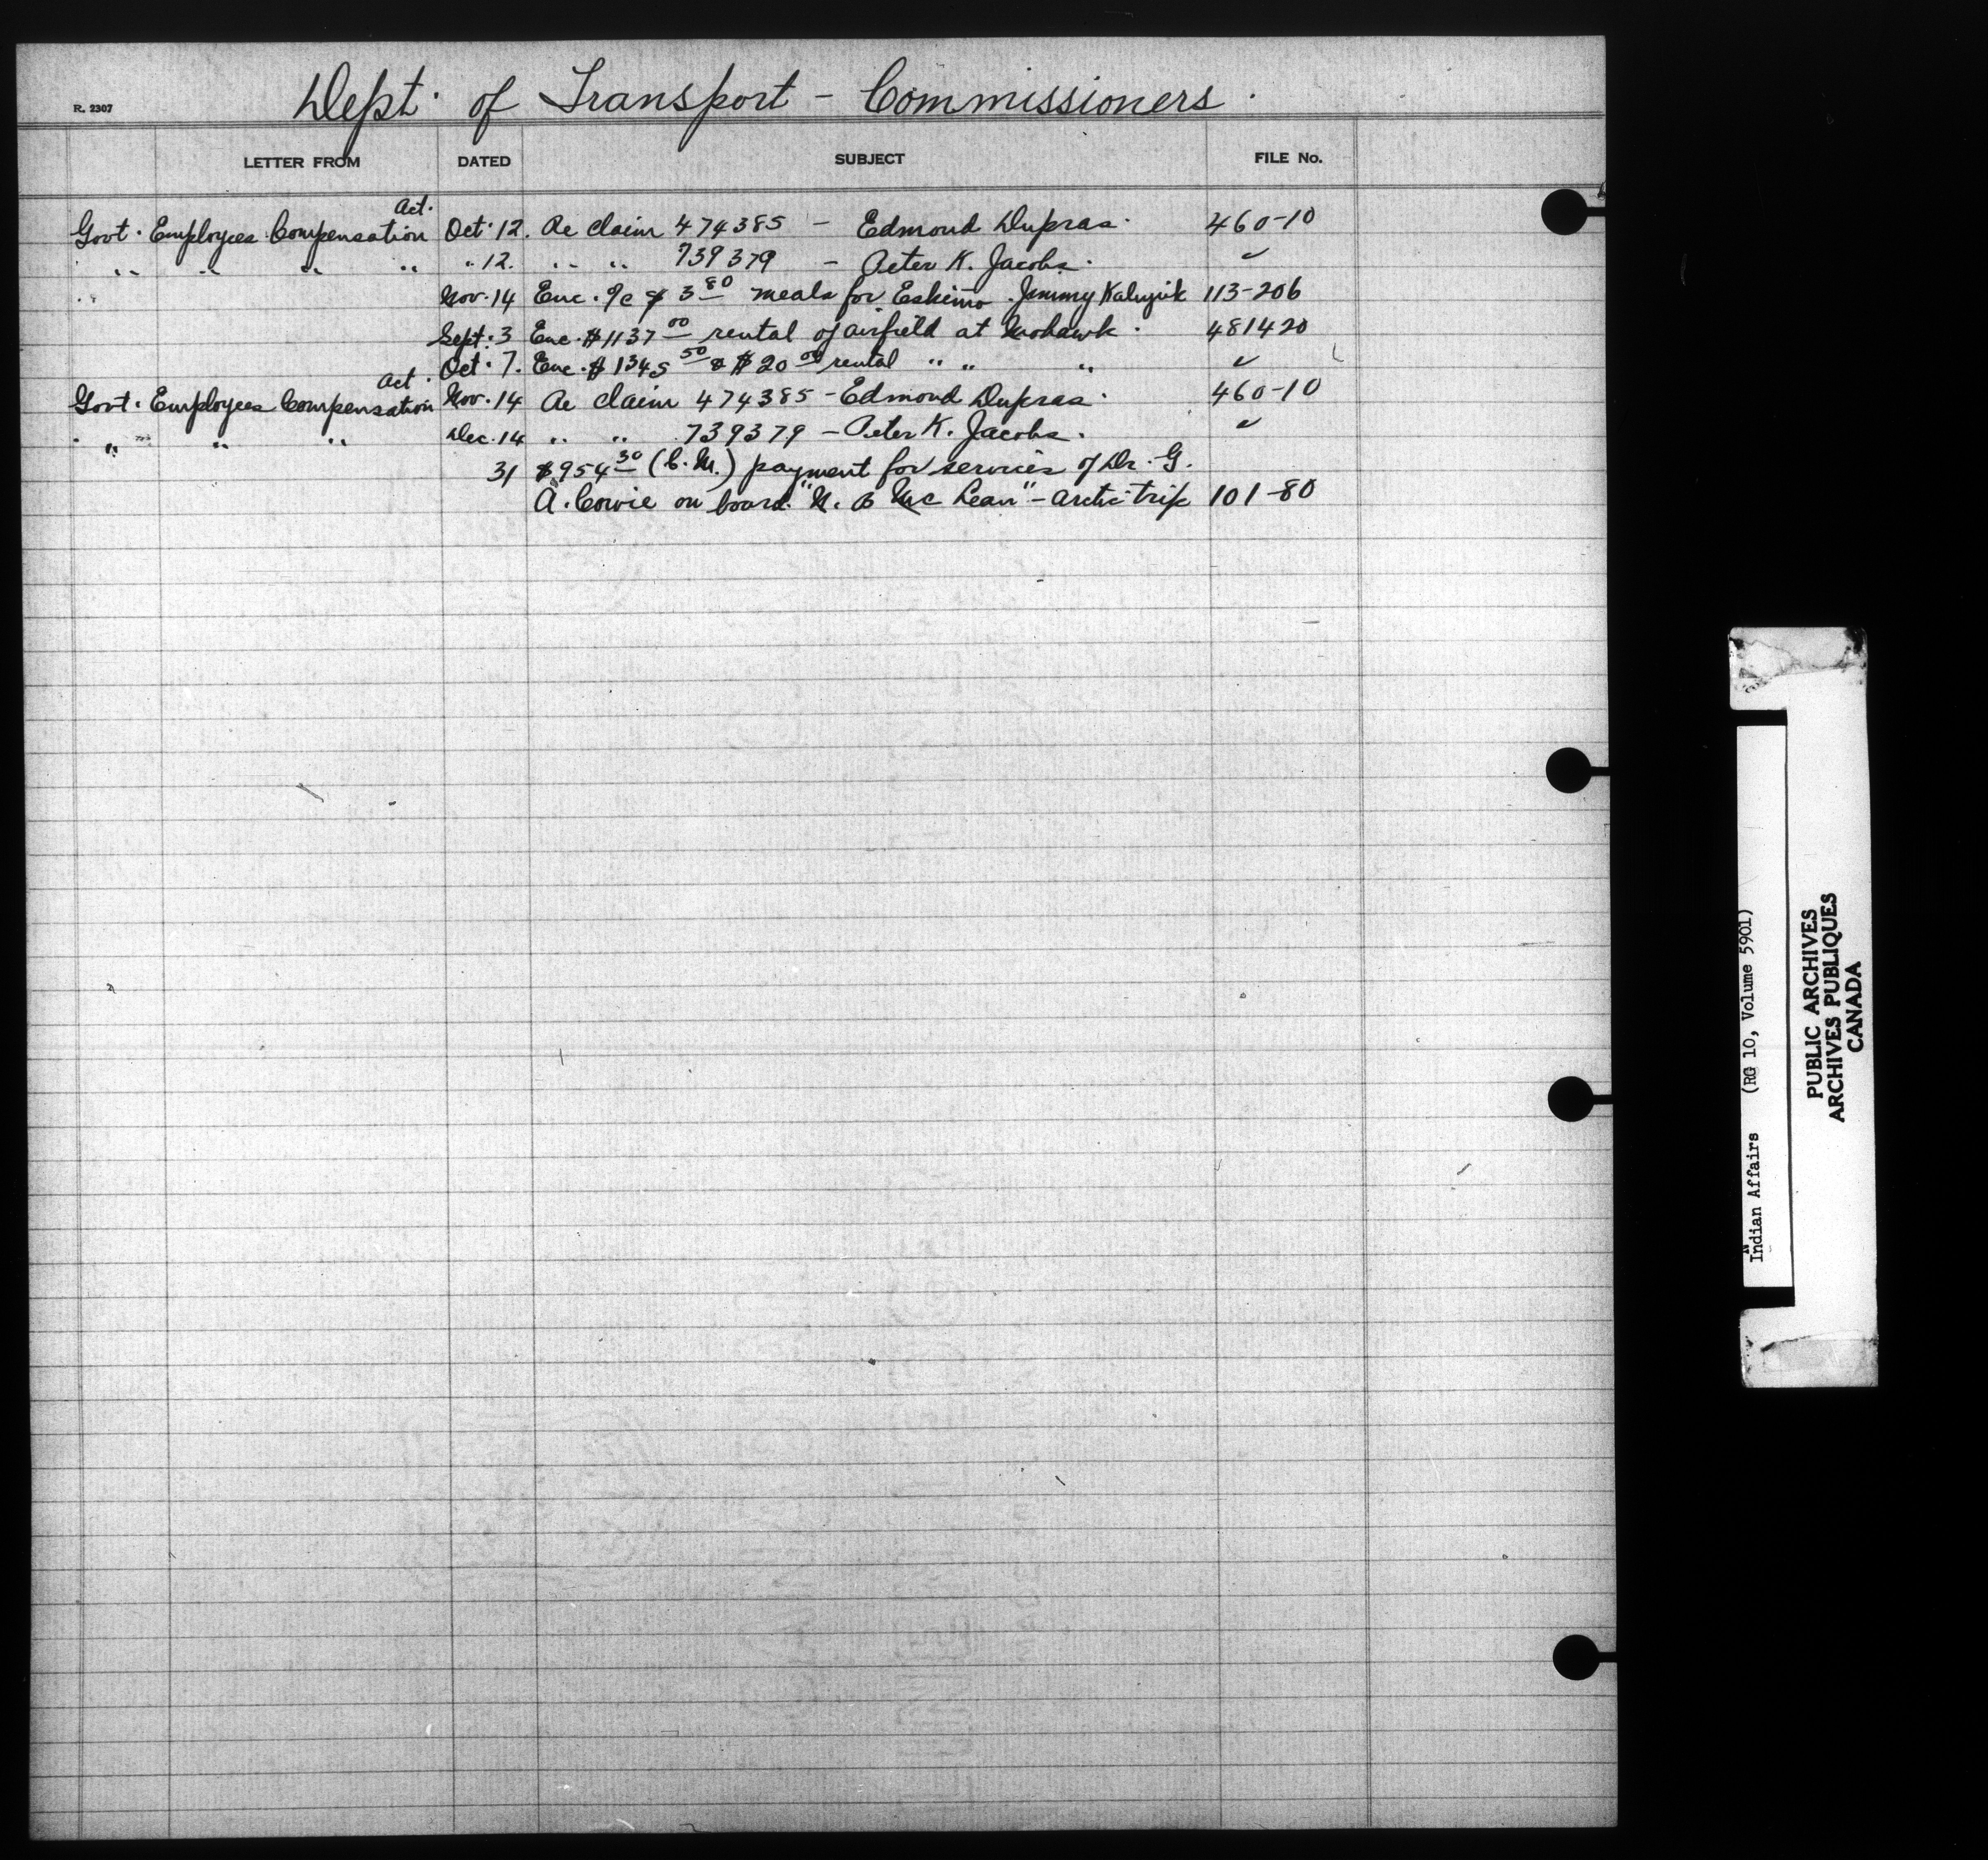 R. 2307
Dept. of Transport - Commissioners.
LETTER FROM DATED SUBJECT FILE No.
Act.
Govt. Employees Compensation Oct. 12. Re claim 474385 - Edmond Dupras. 460-10
" " " " " 12. " " 739379 - Peter K. Jacobs. ✓
Nov. 14 Enc. a/c $3 80 meals for Eskimo Jimmy 113-206
Sept. 3 Enc. $1137 00 rental of airfield at Mohawk. 481420
Oct. 7. Enc. $1345 50 & $20 00 rental " " " ✓
Act.
Govt. Employees Compensation Nov. 14 Re claim 474385 - Edmond Dupras. 460-10
" " " Dec. 14 " " 739379 - Peter K. Jacobs. ✓
31 $954 30 (C.M.) payment for services of Dr. G.
A. Cowie on board "N. B Mc Lean" - arctic trip 101-80
Indian Affairs (RG 10, Volume 5901)
PUBLIC ARCHIVES
ARCHIVES PUBLIQUES
CANADA